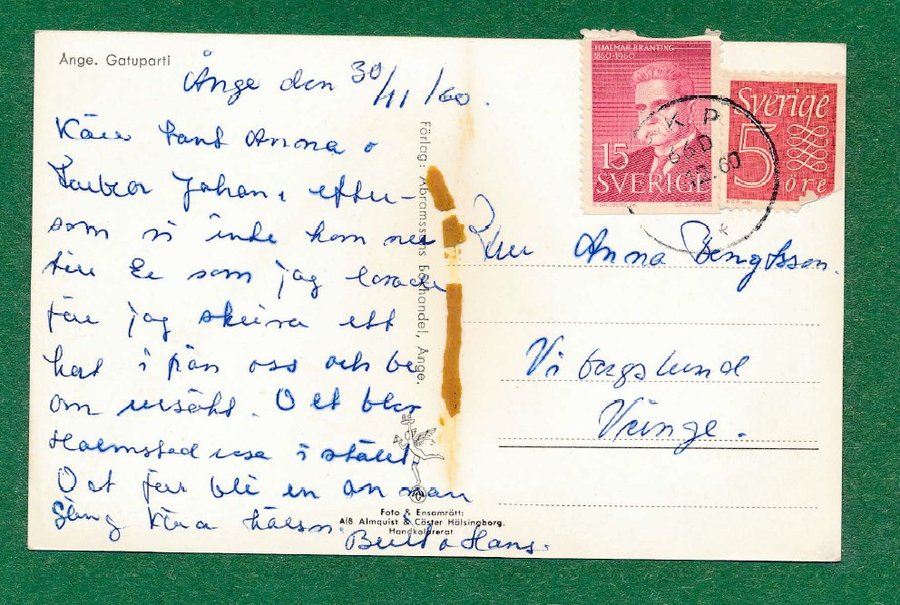 Ånge. Gatuparti
Ånge den 30/11/60.
Kära Tant Anna o
Farbror Johan, efter-
som vi inte kom ner
till Er som jag lovade
får jag skriva ett
kort i från oss och be
om ursäkt. Det blev
Halmstad resa i stället
Det får bli en annan
gång Kära hälsn.
Berit o Hans.
Förlag: Abramssons bokhandel, Ånge.
Foto & Ensamrätt:
A/B Almquist & Cöster Hälsingborg.
Handkolorerat
HJALMAR BRANTING
1860-1960
15
SVERIGE
Sverige
5
öre
K P
60
Anna Bengtsson.
Vibergslund
Veinge.